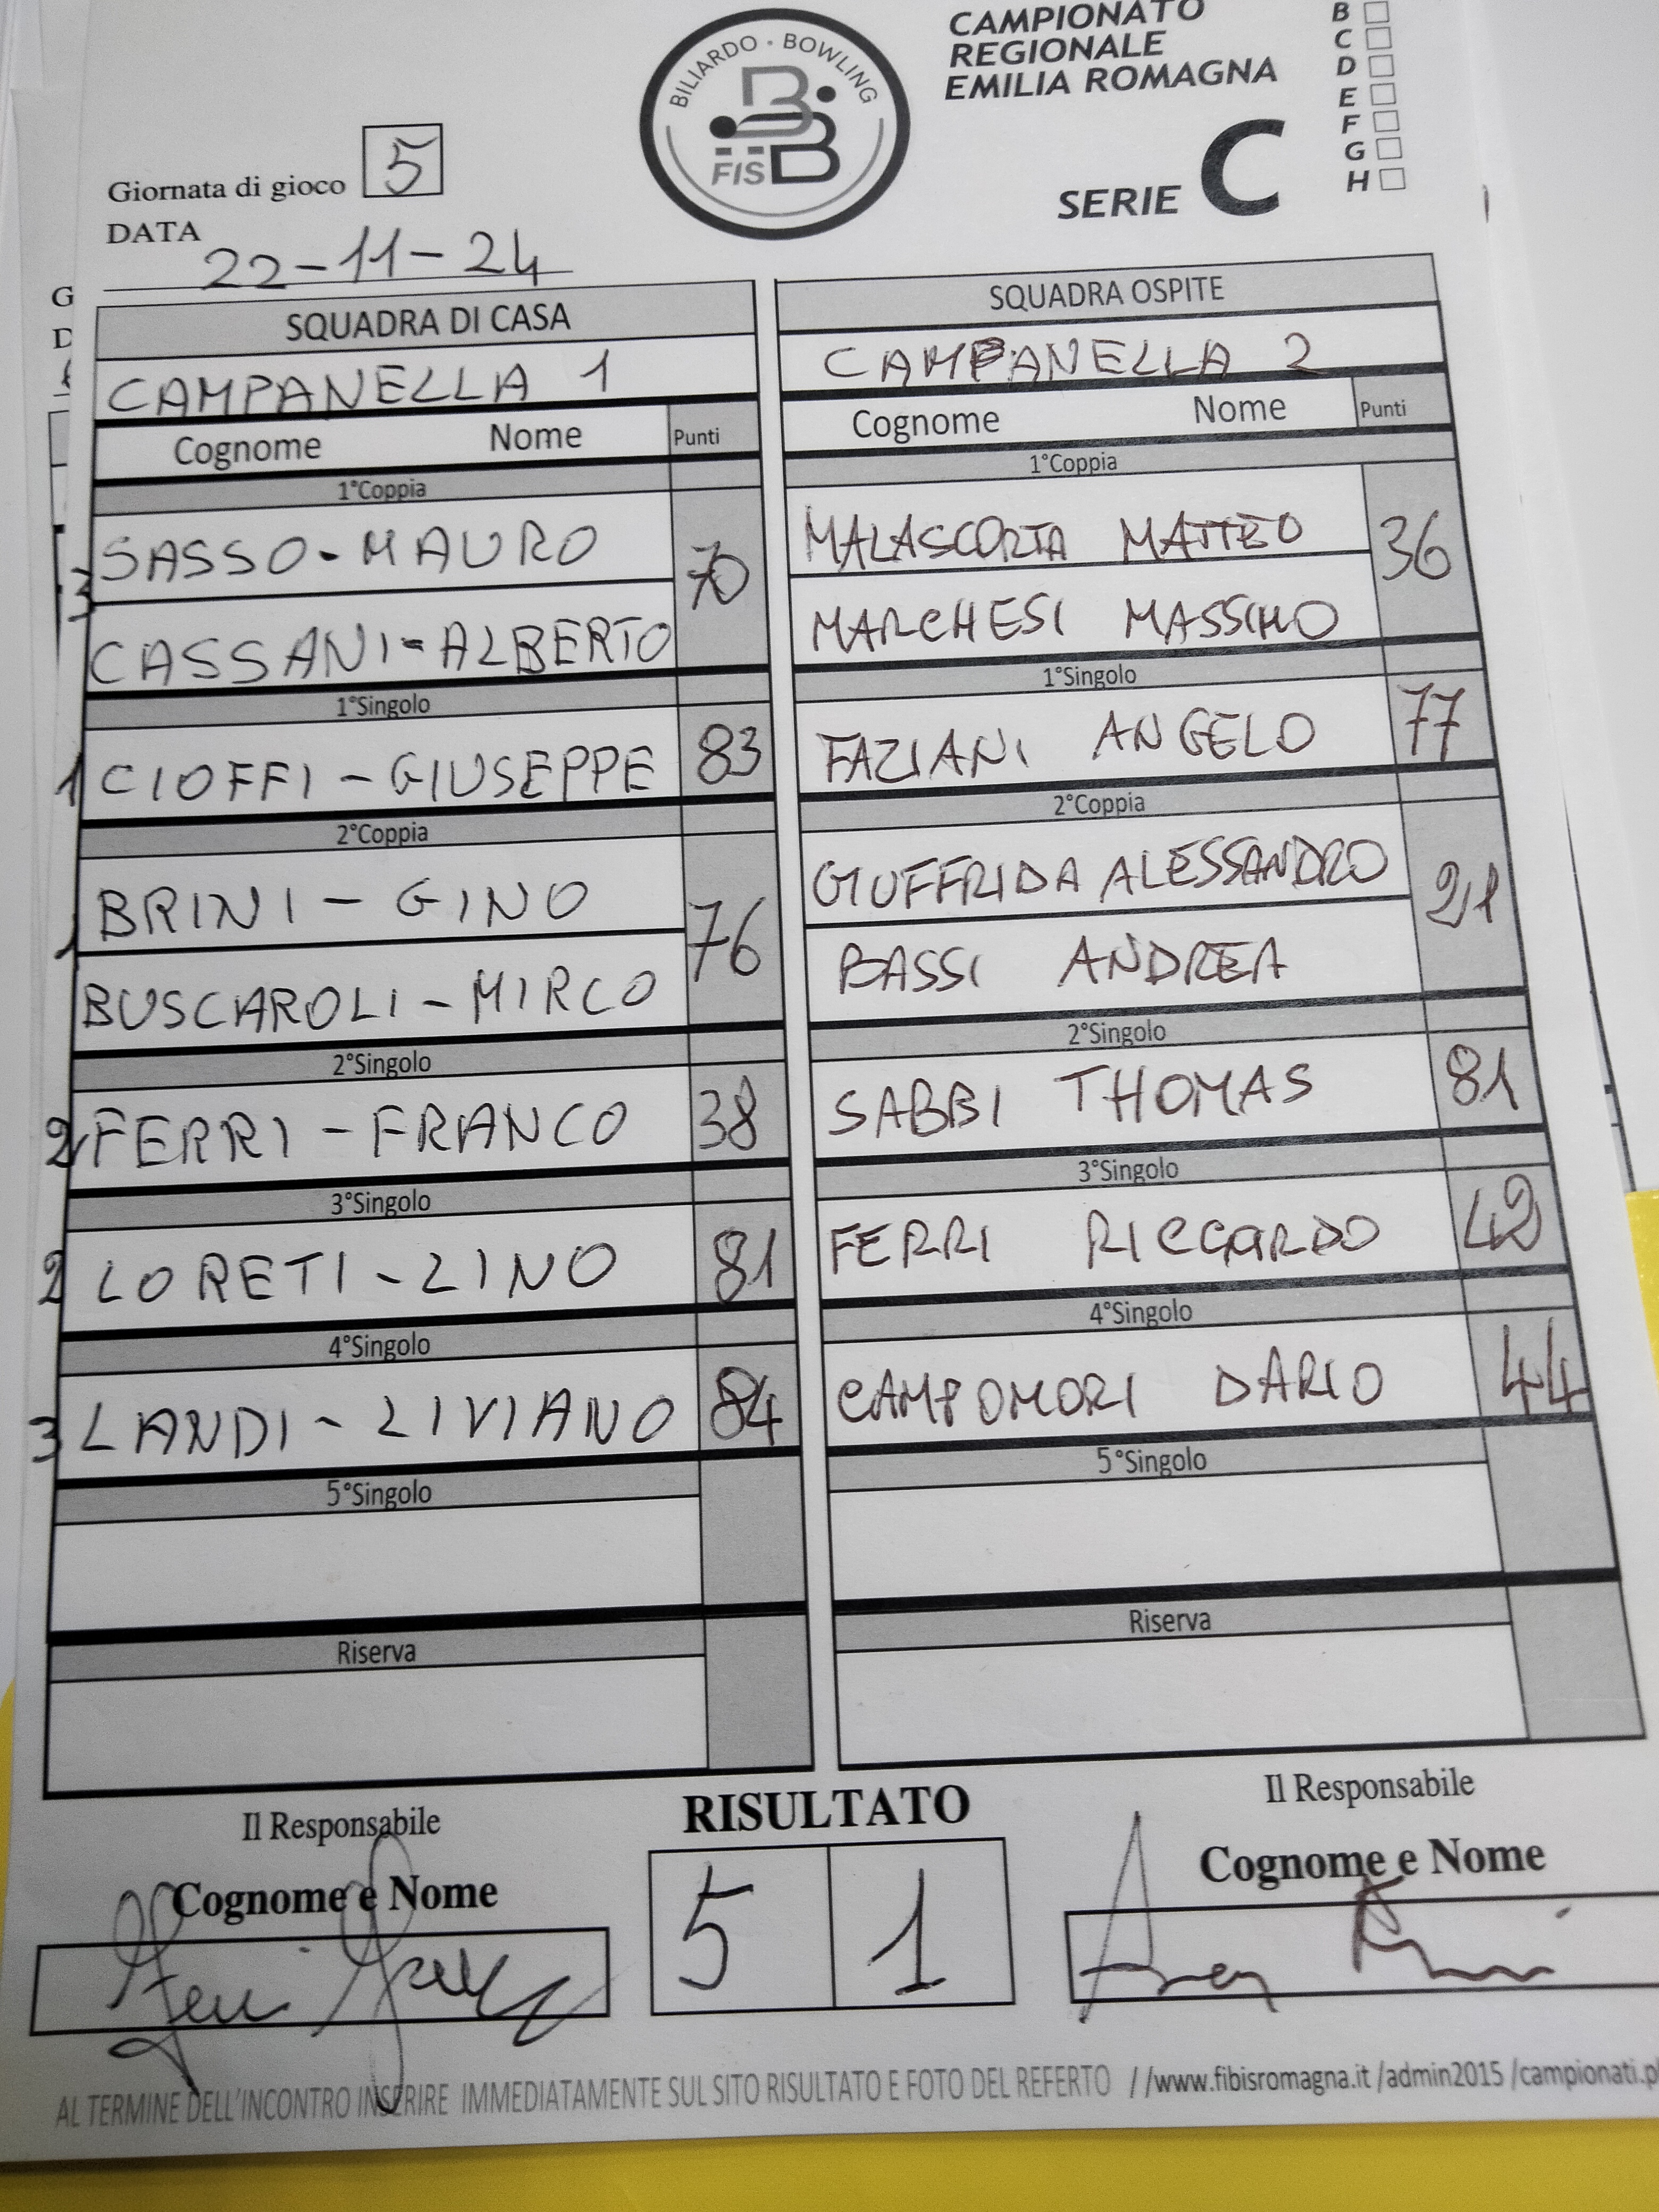 CAMPIONATO
REGIONALE
EMILIA ROMAGNA
SERIE C
B
C
D
E
F
G
H
BILIARDO · BOWLING
FISBB
Giornata di gioco 5
DATA 22-11-24
SQUADRA DI CASA
CAMPANELLA 1
Cognome Nome Punti
1°Coppia
3 SASSO-MAURO 70
CASSANI=ALBERTO
1°Singolo
1 CIOFFI - GIUSEPPE 83
2°Coppia
1 BRINI - GINO 76
BUSCAROLI - MIRCO
2°Singolo
2 FERRI - FRANCO 38
3°Singolo
2 LORETI - LINO 81
4°Singolo
3 LANDI - LIVIANO 84
5°Singolo
Riserva
SQUADRA OSPITE
CAMPANELLA 2
Cognome Nome Punti
1°Coppia
MALASCORTA MATTEO 36
MARCHESI MASSIMO
1°Singolo
FAZIANI ANGELO 77
2°Coppia
GIUFFRIDA ALESSANDRO 21
BASSI ANDREA
2°Singolo
SABBI THOMAS 81
3°Singolo
FERRI RICCARDO 42
4°Singolo
CAMPOMORI DARIO 44
5°Singolo
Riserva
Il Responsabile
Cognome e Nome
RISULTATO
5 1
Il Responsabile
Cognome e Nome
AL TERMINE DELL'INCONTRO INSERIRE IMMEDIATAMENTE SUL SITO RISULTATO E FOTO DEL REFERTO //www.fibisromagna.it /admin2015 /campionati.p